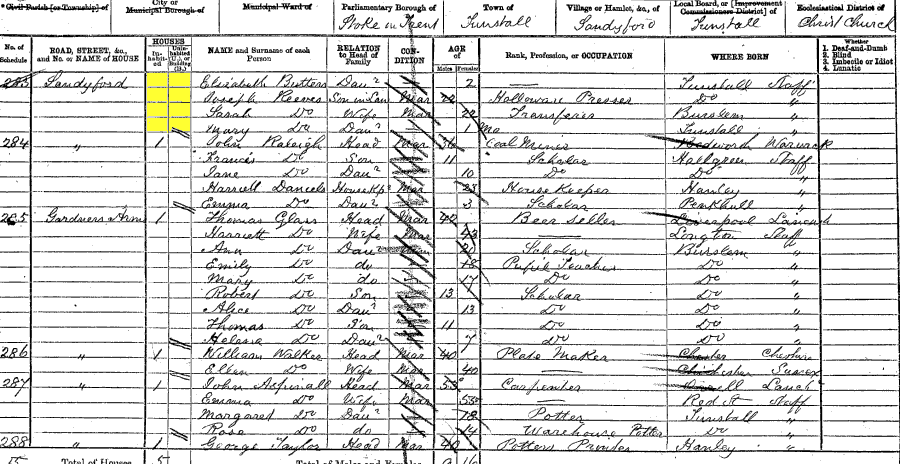 Civil Parish [or Township] of City or Municipal Borough of Municipal Ward of Parliamentary Borough of Town of Village or Hamlet, &c., of Local Board, or [Improvement Commissioners District] of Ecclesiastical District of
Stoke on Trent Tunstall Sandyford Tunstall Christ Church
No. of Schedule ROAD, STREET, &c., and No. or NAME of HOUSE HOUSES Inhabited Uninhabited (U.), or Building (B.) NAME and Surname of each Person RELATION to Head of Family CONDITION AGE of Males Females Rank, Profession, or OCCUPATION WHERE BORN Whether 1. Deaf-and-Dumb 2. Blind 3. Imbecile or Idiot 4. Lunatic
283 Sandyford Elizabeth Butters Daur 2 — Tunstall Staff
Joseph Reeves Son in Law Mar Hollowware Presser Do "
Sarah Do Wife Mar Transferer Burslem "
Mary Do Daur 1 mo Tunstall "
284 " 1 John Raleigh Head Mar Coal Miner Bedworth Warwick
Francis Do Son 11 Scholar Hallgreen Staff
Jane Do Daur 10 Do Do "
Harriett Daniels Housekpr Mar 28 House Keeper Hanley "
Emma Do Daur 3 Scholar Penkhull "
285 Gardners Arms 1 Thomas Glass Head Mar 42 Beer Seller Liverpool Lancash
Harriett Do Wife Mar 43 — Longton Staff
Ann Do Daur 20 Scholar Burslem "
Emily Do do 18 Pupil Teacher Do "
Mary Do do 17 Do Do "
Robert Do Son 13 Scholar Do "
Alice Do Daur 13 Do Do "
Thomas Do Son 11 Do Do "
Do Daur 7 Do Do "
286 " 1 William Walker Head Mar 40 Plate Maker Cheshire
Ellen Do Wife Mar 40 — Chichester Sussex
287 " 1 John Aspinall Head Mar 55 Carpenter Lanch
Emma Do Wife Mar 55 — Red St Staff
Margaret Do Daur 18 Potter Tunstall "
Rose Do do 14 Warehouse Potter Do "
288 " 1 George Taylor Head Mar 40 Potters Printer Hanley "
15 Total of Houses 5 Total of Males and Females 9 16